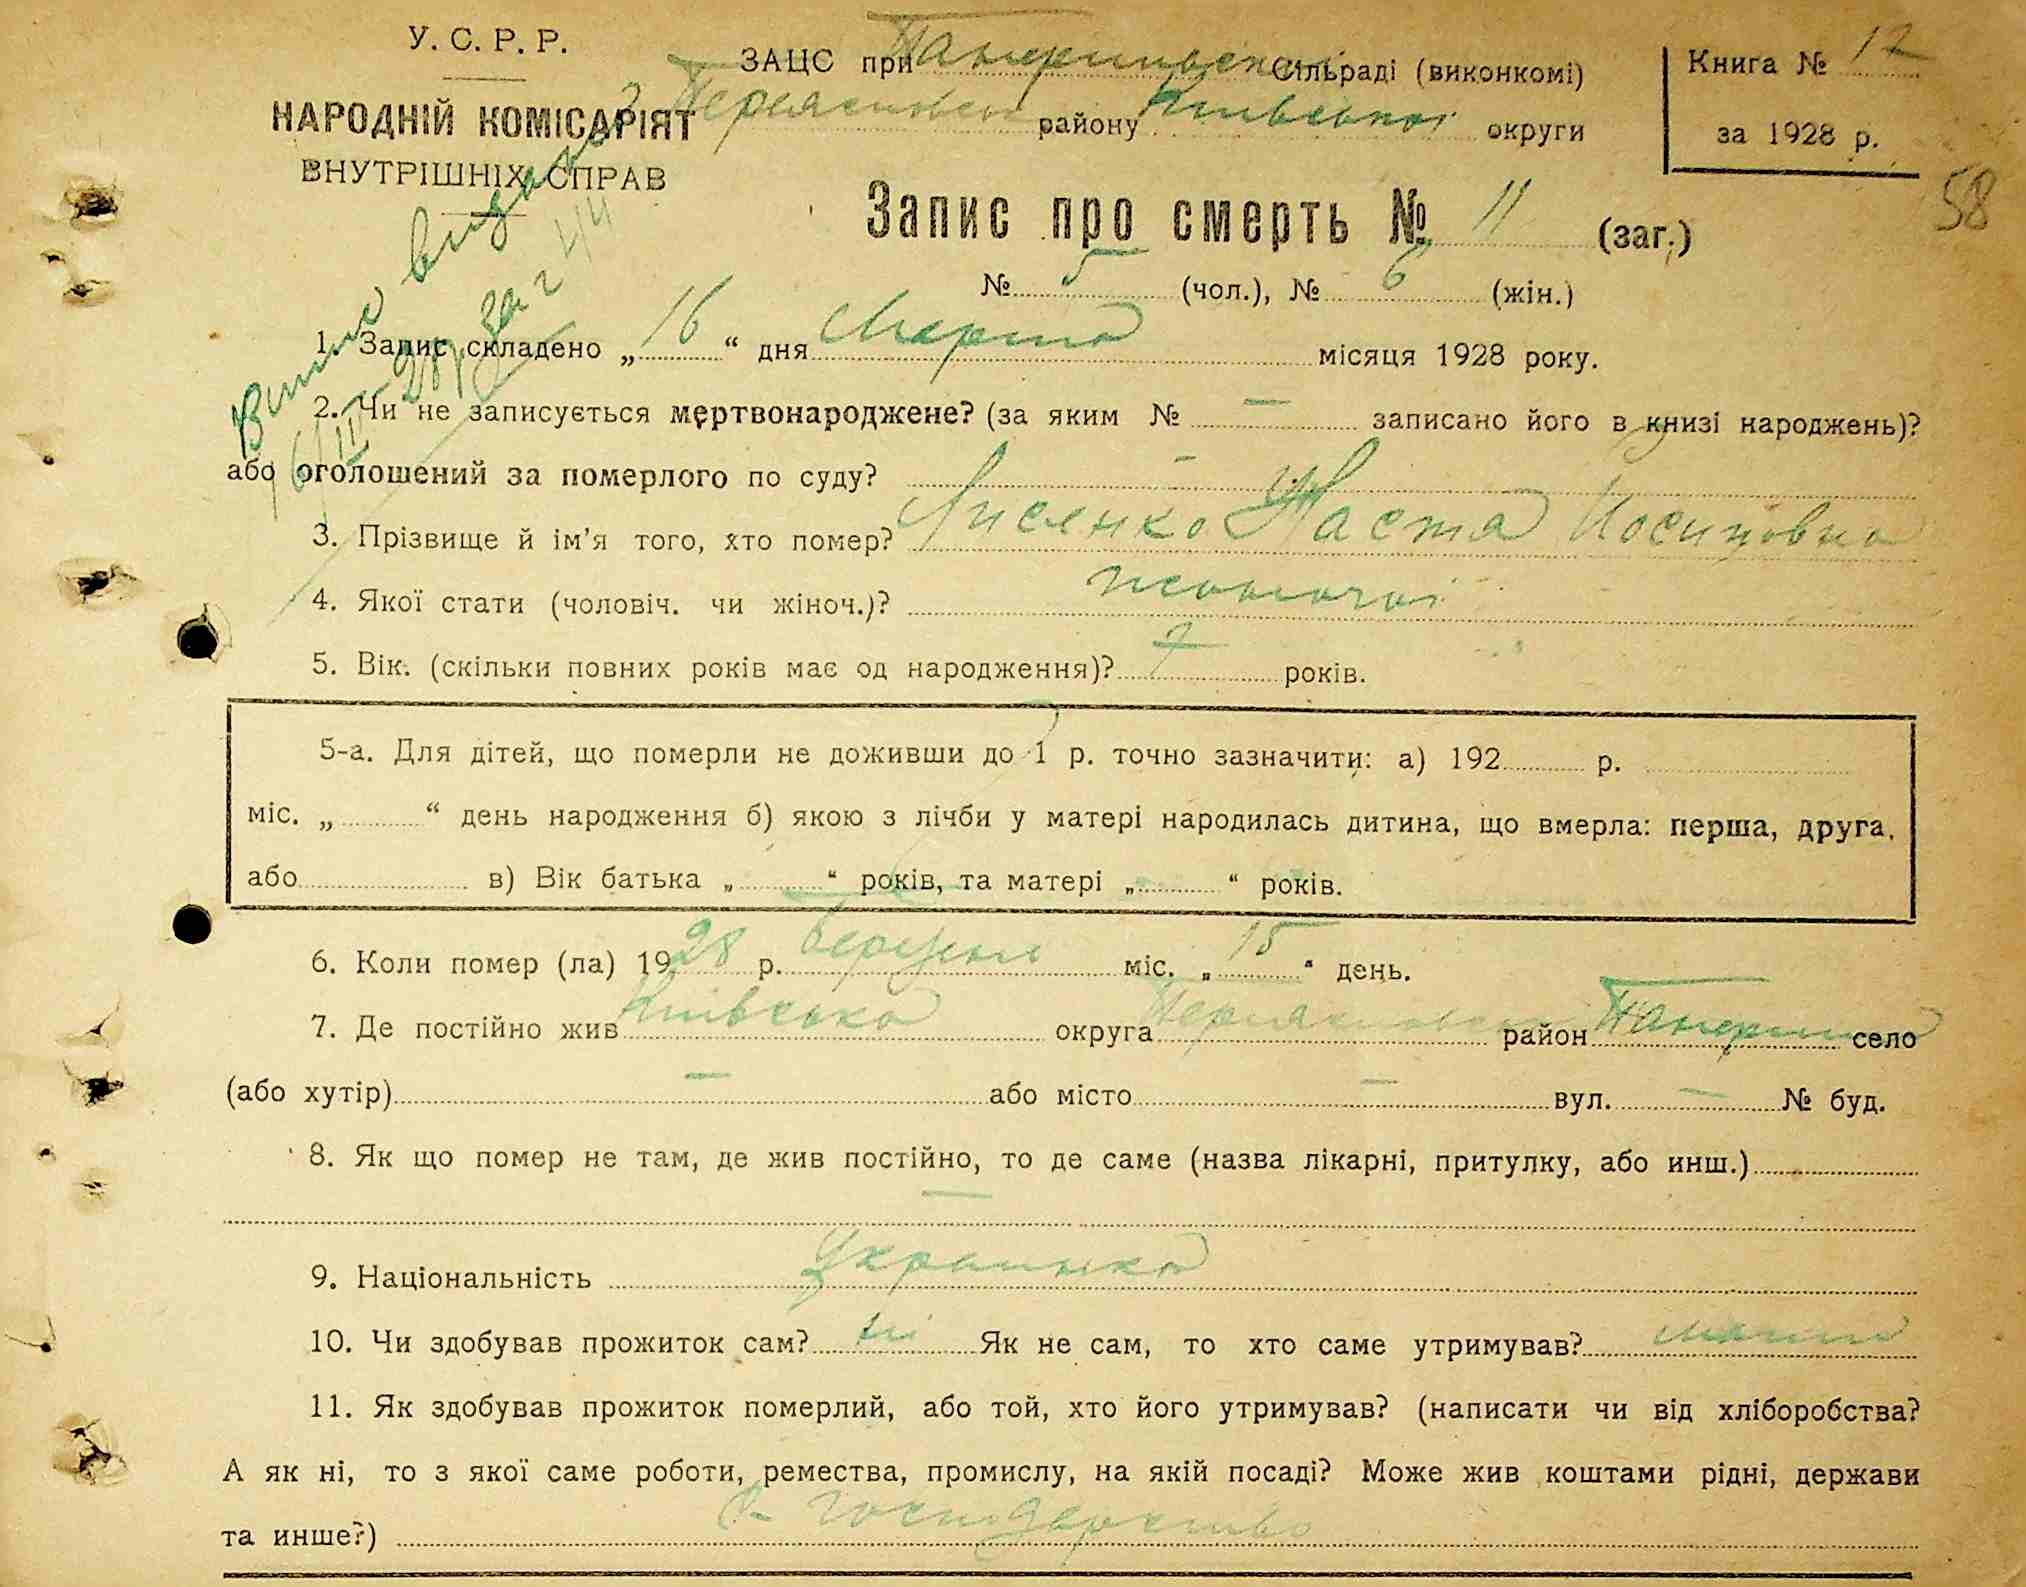 У. С. Р. Р.
НАРОДНІЙ КОМІСАРІЯТ
ВНУТРІШНІХ СПРАВ
ЗАЦС при Сільраді (виконкомі)
району Київської округи
Книга № 12
за 1928 р.
58
Запис про смерть № 11 (заг.)
№ 5 (чол.), № 6 (жін.)
1. Запис складено „ 16 “ дня Марта місяця 1928 року.
2. Чи не записується мертвонароджене? (за яким № — записано його в книзі народжень)?
або оголошений за померлого по суду? —
3. Прізвище й ім’я того, хто помер? Лисенко Настя Иосиповна
4. Якої стати (чоловіч. чи жіноч.)? жіночої
5. Вік. (скільки повних років має од народження)? 7 років.
5-а. Для дітей, що померли не доживши до 1 р. точно зазначити: а) 192 р.
міс. „ “ день народження б) якою з лічби у матері народилась дитина, що вмерла: перша, друга,
або в) Вік батька „ “ років, та матері „ “ років.
6. Коли помер (ла) 1928 р. березня міс. „ 15 “ день.
7. Де постійно жив Київська округа район село
(або хутір) — або місто — вул. — № буд.
8. Як що помер не там, де жив постійно, то де саме (назва лікарні, притулку, або инш.)
—
9. Національність Українка
10. Чи здобував прожиток сам? ні Як не сам, то хто саме утримував? мати
11. Як здобував прожиток померлий, або той, хто його утримував? (написати чи від хліборобства?
А як ні, то з якої саме роботи, ремества, промислу, на якій посаді? Може жив коштами рідні, держави
та инше?) С- господарство